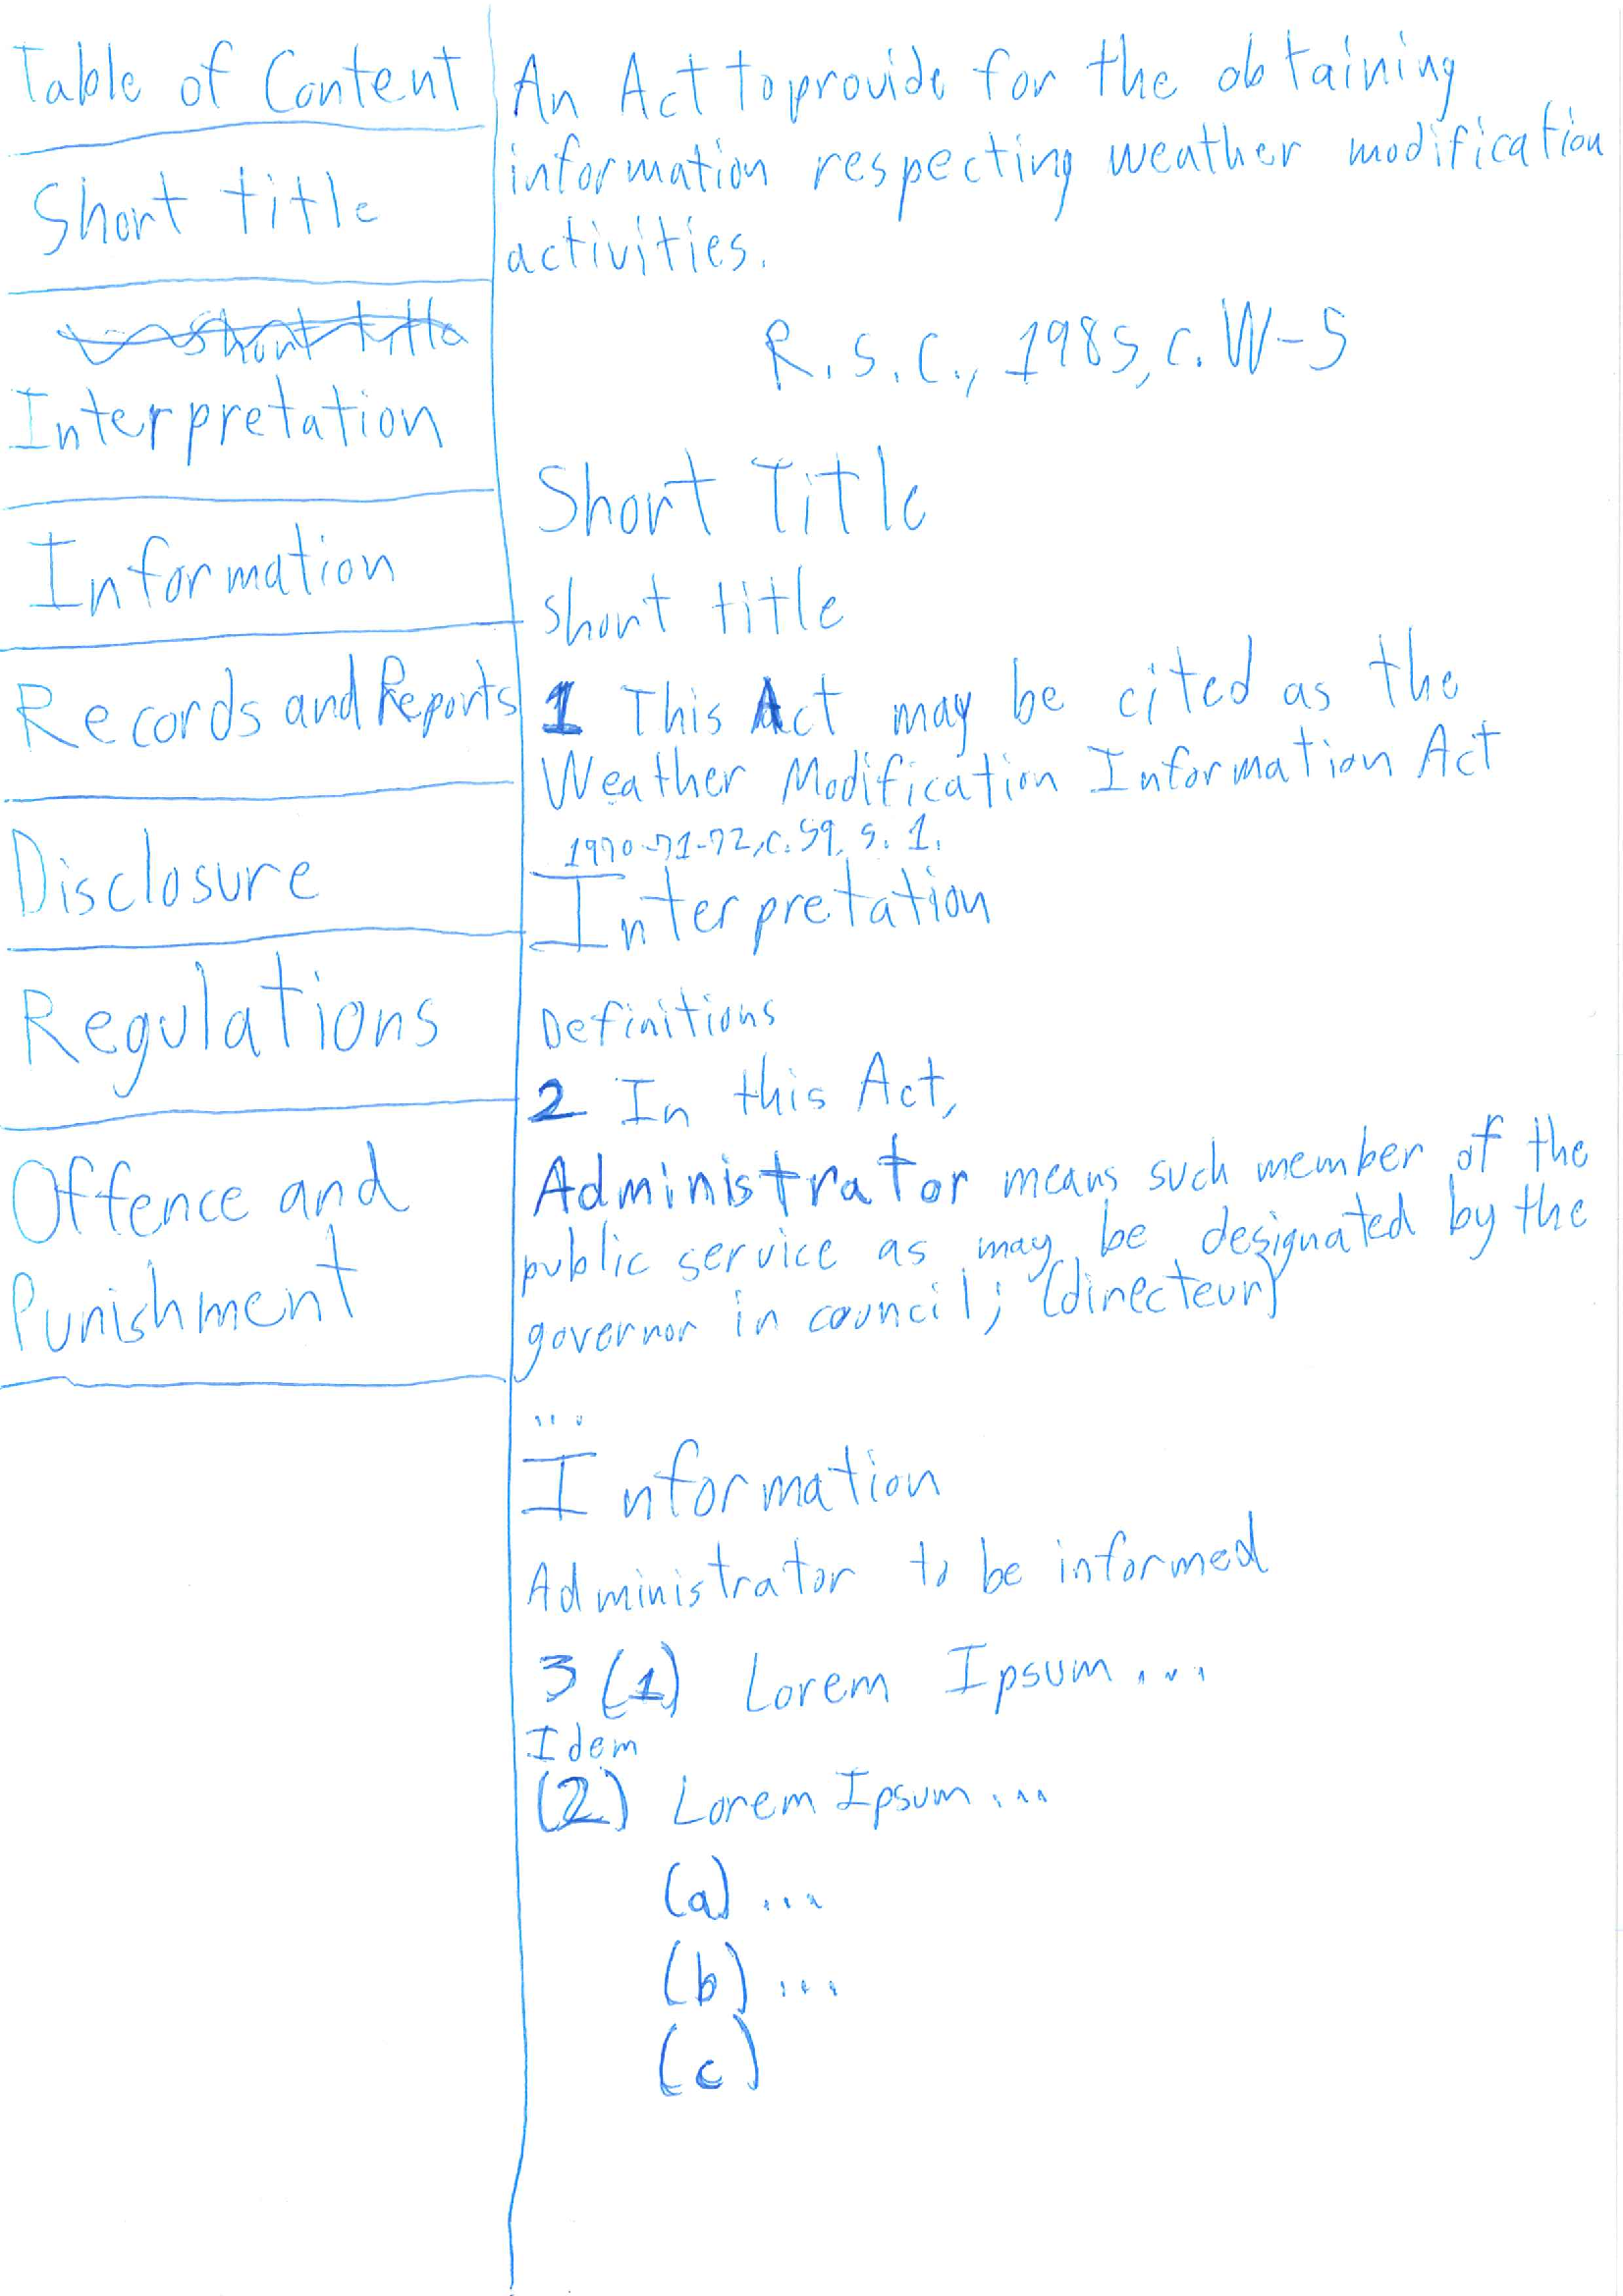 Table of Content
Short title
Short title
Interpretation
Information
Records and Reports
Disclosure
Regulations
Offence and
Punishment
An Act to provide for the obtaining
information respecting weather modification
activities.
R.S.C., 1985, c. W-5
Short Title
Short title
1 This Act may be cited as the
Weather Modification Information Act
1970-71-72, c. 59, s. 1.
Interpretation
Definitions
2 In this Act,
Administrator means such member of the
public service as may be designated by the
governor in council; (directeur)
...
Information
Administrator to be informed
3 (1) Lorem Ipsum...
Idem
(2) Lorem Ipsum...
(a) ...
(b) ...
(c)